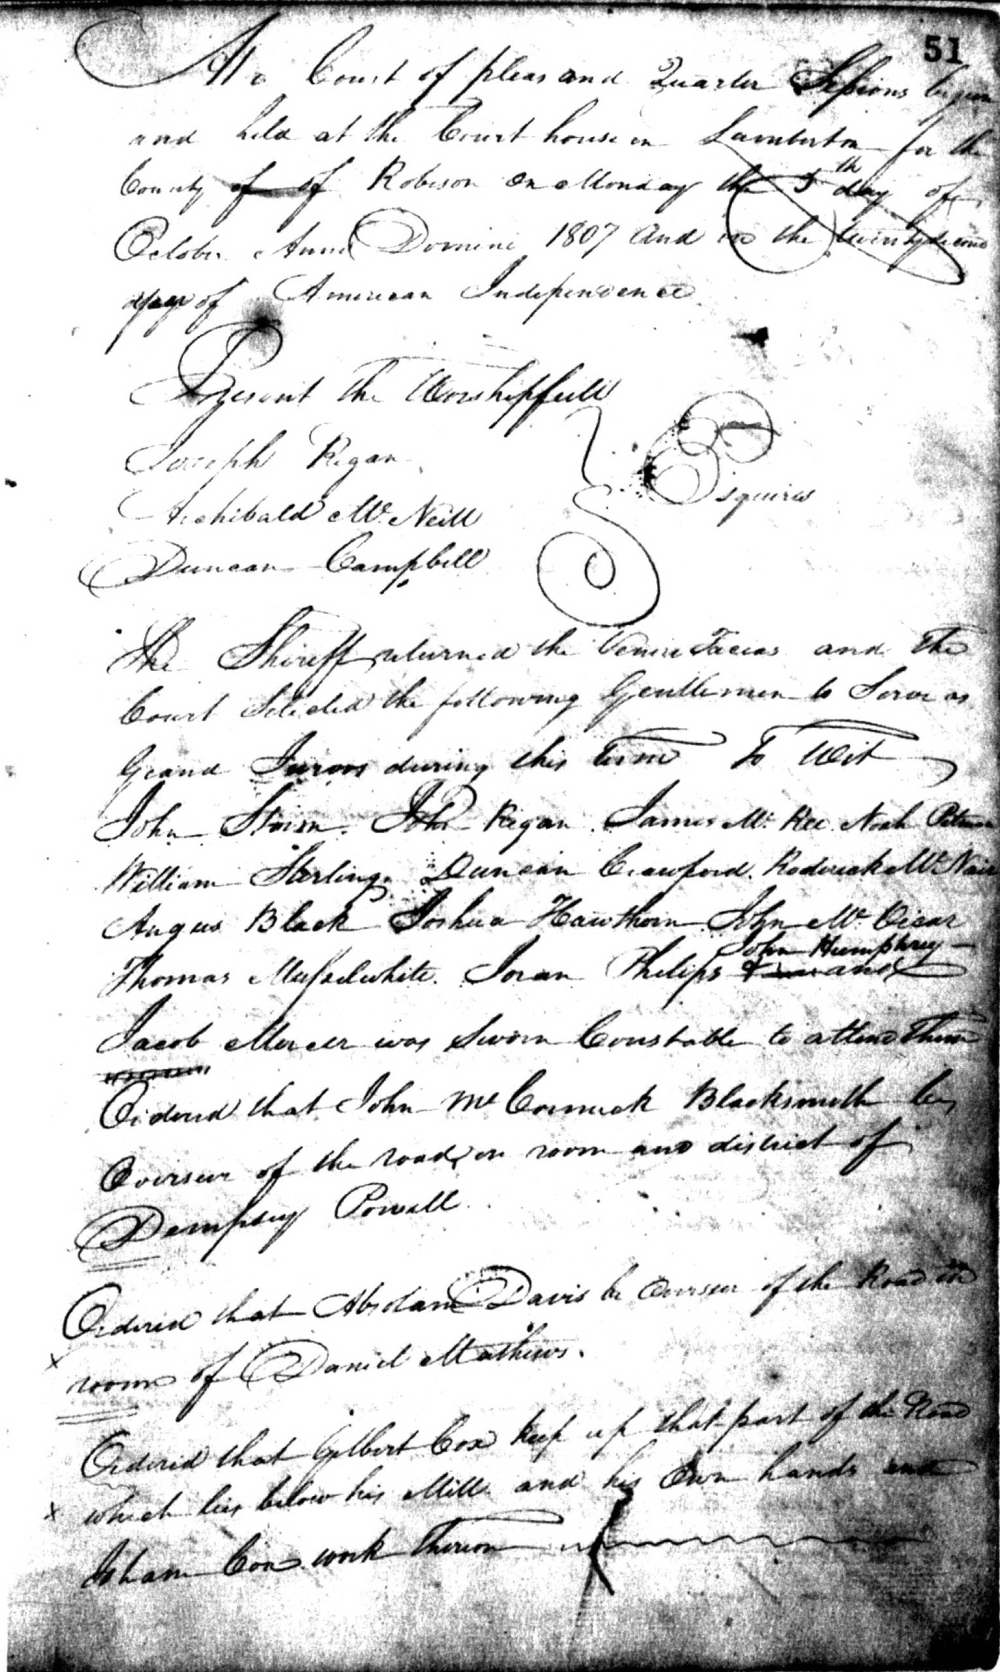 51
At a Court of pleas and Quarter Sessions begun
and held at the Court house in Lumberton for the
County of of Robeson on Monday the 5th day of
October Anno Domini 1807 and in the twenty second
year of American Independence
Present the Worshipfull
Joseph Regan
Archibald Mc Neill
Esquires
Duncan Campbell
The Shireff returned the Venire Facias and the
Court Selected the following Gentlemen to Serve as
Grand Jurors during this term To Wit
John Regan James Mc Kee Noah Pitman
William Sterling Duncan Crawford Roderick Mc Nair
Angus Black Joshua Hawthorn John Mc Vicar
John Humphrey
Thomas Musselwhite Philips and
Jacob Mercer was Sworn Constable to attend Them
Ordered that John Mc Cormick Blacksmith be
Overseer of the road in room and district of
Dempsey Powell
Ordered that Absolam Davis be overseer of the Road in
x
room of Daniel Mathews.
Ordered that Gilbert Cox keep up that part of the Road
x which lies below his Mill and his Own hands and
Isham Cox work Thereon